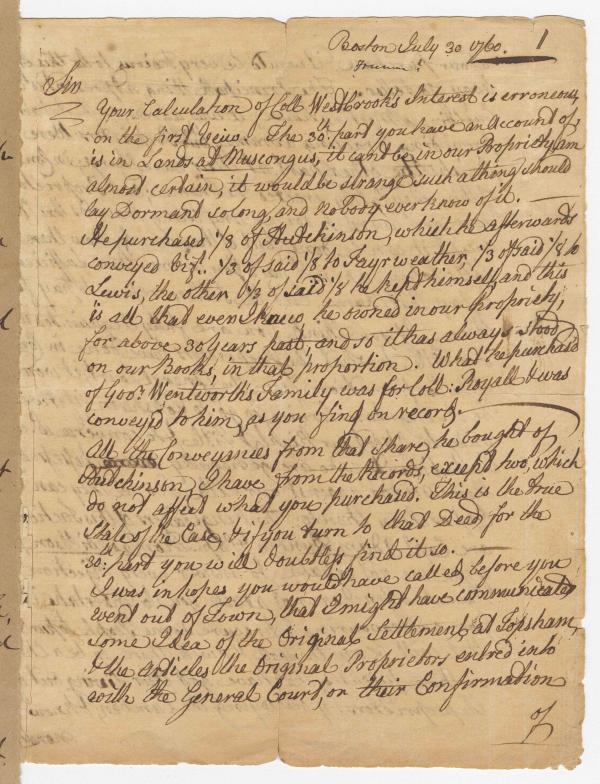 Boston July 30 1760. 1
Sir
Your Calculation of Coll Westbrook's Interest is erroneous,
on the first veiw. The 30th. part you have an account of,
is in Lands at Muscongus, it cant be in our Propriety, am
almost certain, it would be strange such a thing should
lay Dormant so long, and nobody ever know of it.
He purchased 1/8 of Hutchinson, which he afterwards
conveyed Vizt.. 1/3 of said 1/8 to Fayrweather, 1/3 of said 1/8 to
Lewis, the other 1/3 of said 1/8 he kept himself, and this
is all that ever I knew he owned in our Propriety,
for above 30 Years past, and so it has always stood
on our Books, in that proportion. What he purchas'd
of Govr. Wentworth's Family was for Coll: Royall & was
convey'd to him, as you find on record.
All the Conveyances from that share, he bought of
Hutchinson, I have from the Records, except two, which
do not affect what you purchased. This is the true
State of the Case, & if you turn to that Deed for the
30th: part you will doubtless find it so.
I was in hopes you would have called, before you
went out of Town, that I might have communicated
some Idea of the Original Settlement at Topsham,
& the Articles the Original Proprietors entred into
with the General Court, on their Confirmation
of